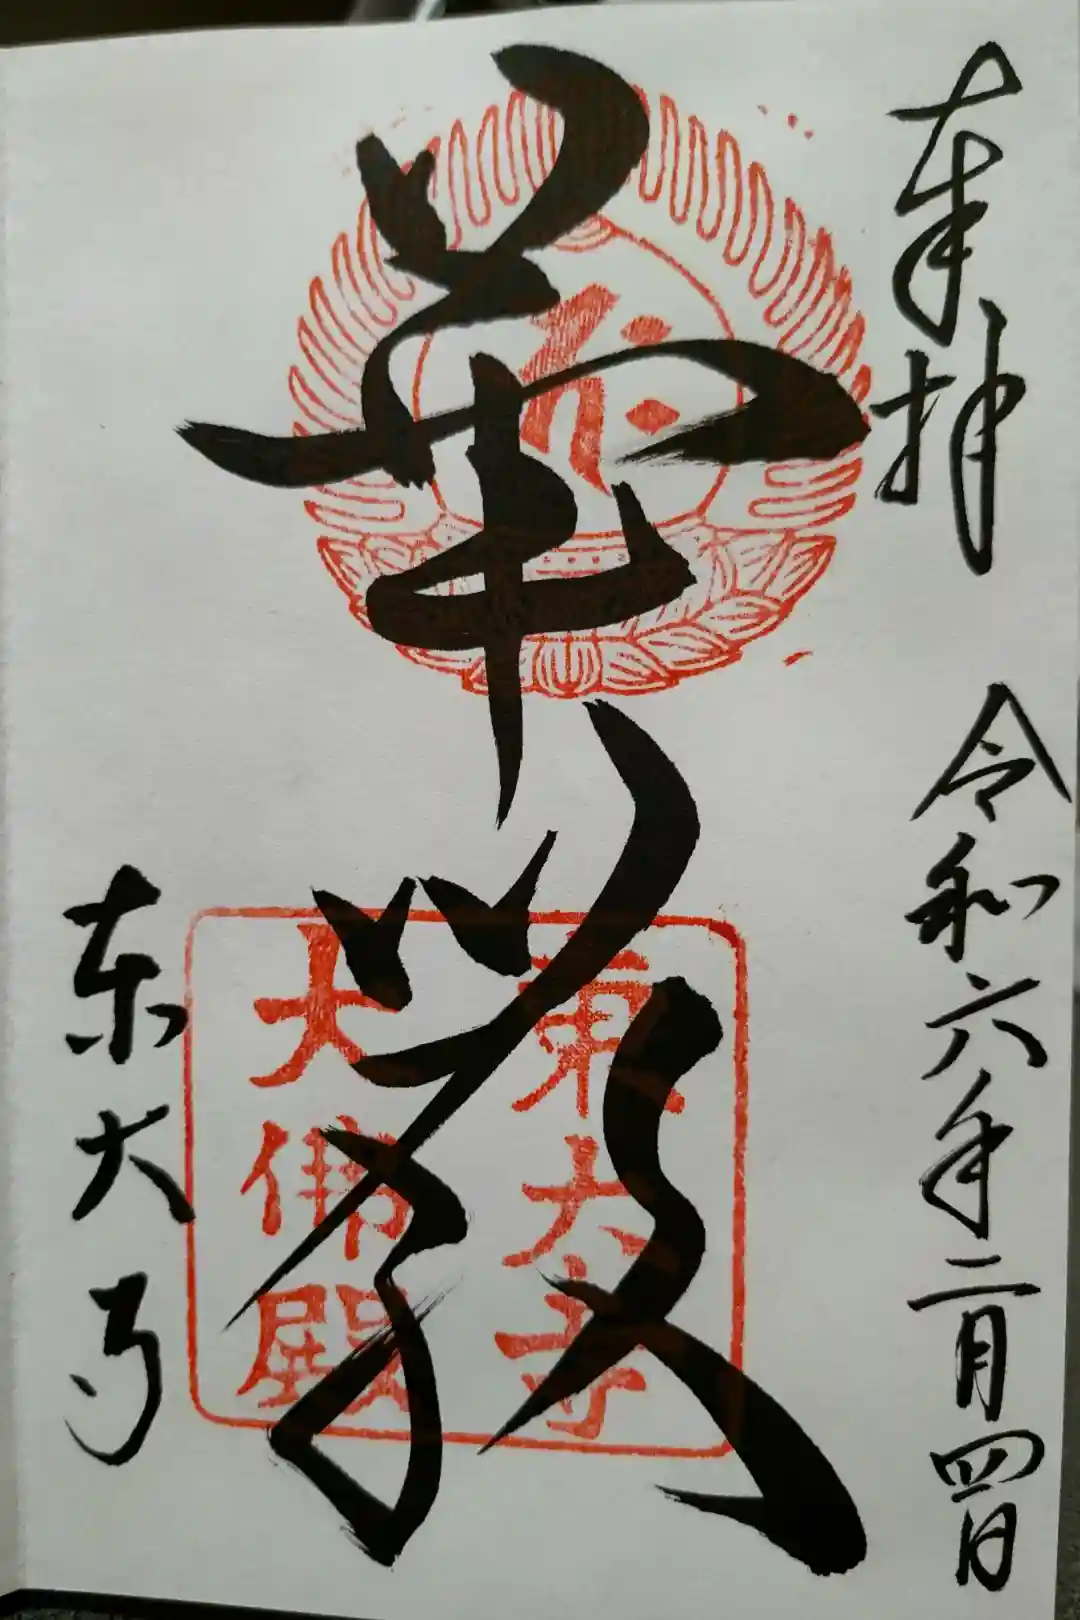 奉拝 令和六年二月四日
華厳
東大寺
大佛殿
東大寺